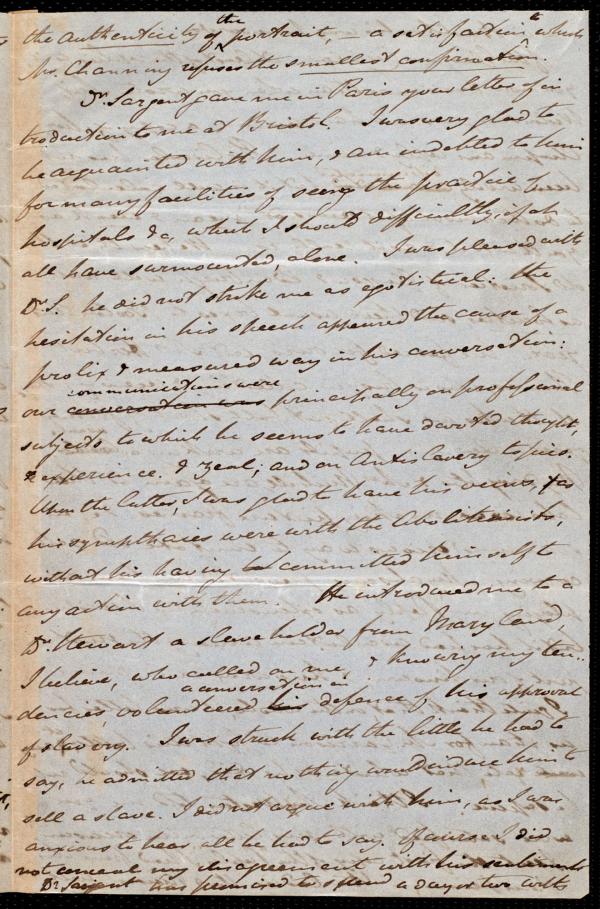 the authenticity of the portrait, — a satisfaction which
Mrs. Channing refuses the smallest confirmation.
Dr. Sargent gave me in Paris your letter of in
troduction to me at Bristol. I was very glad to
be acquainted with him, & am indebted to him
for many facilities of seeing the practice of
hospitals &c, which I should difficultly, if at
all have surmounted, alone. I was pleased with
Dr. S. he did not strike me as egotistical: the
hesitation in his speech appeared the cause of a
prolix & measured way in his conversation:
our conversation was communications were principally on professional
subjects to which he seems to have devoted thought,
& experience. & zeal; and on Antislavery topics.
Upon the latter, I was glad to have his views, & as
his sympathies were with the Abolitionists,
without his having committed himself to
any action with them. He introduced me to a
Dr. Stewart a slaveholder from Maryland,
I believe, who called on me & knowing my ten-
dencies, volunteered his a conversation in defence of his approval
of slavery. I was struck with the little he had to
say, he admitted that nothing would induce him to
sell a slave. I did not argue with him, as I was
anxious to hear all he had to say. Of course I did
not conceal my disagreement with his sentiments
Dr. Sargent has promised to spend a day or two with